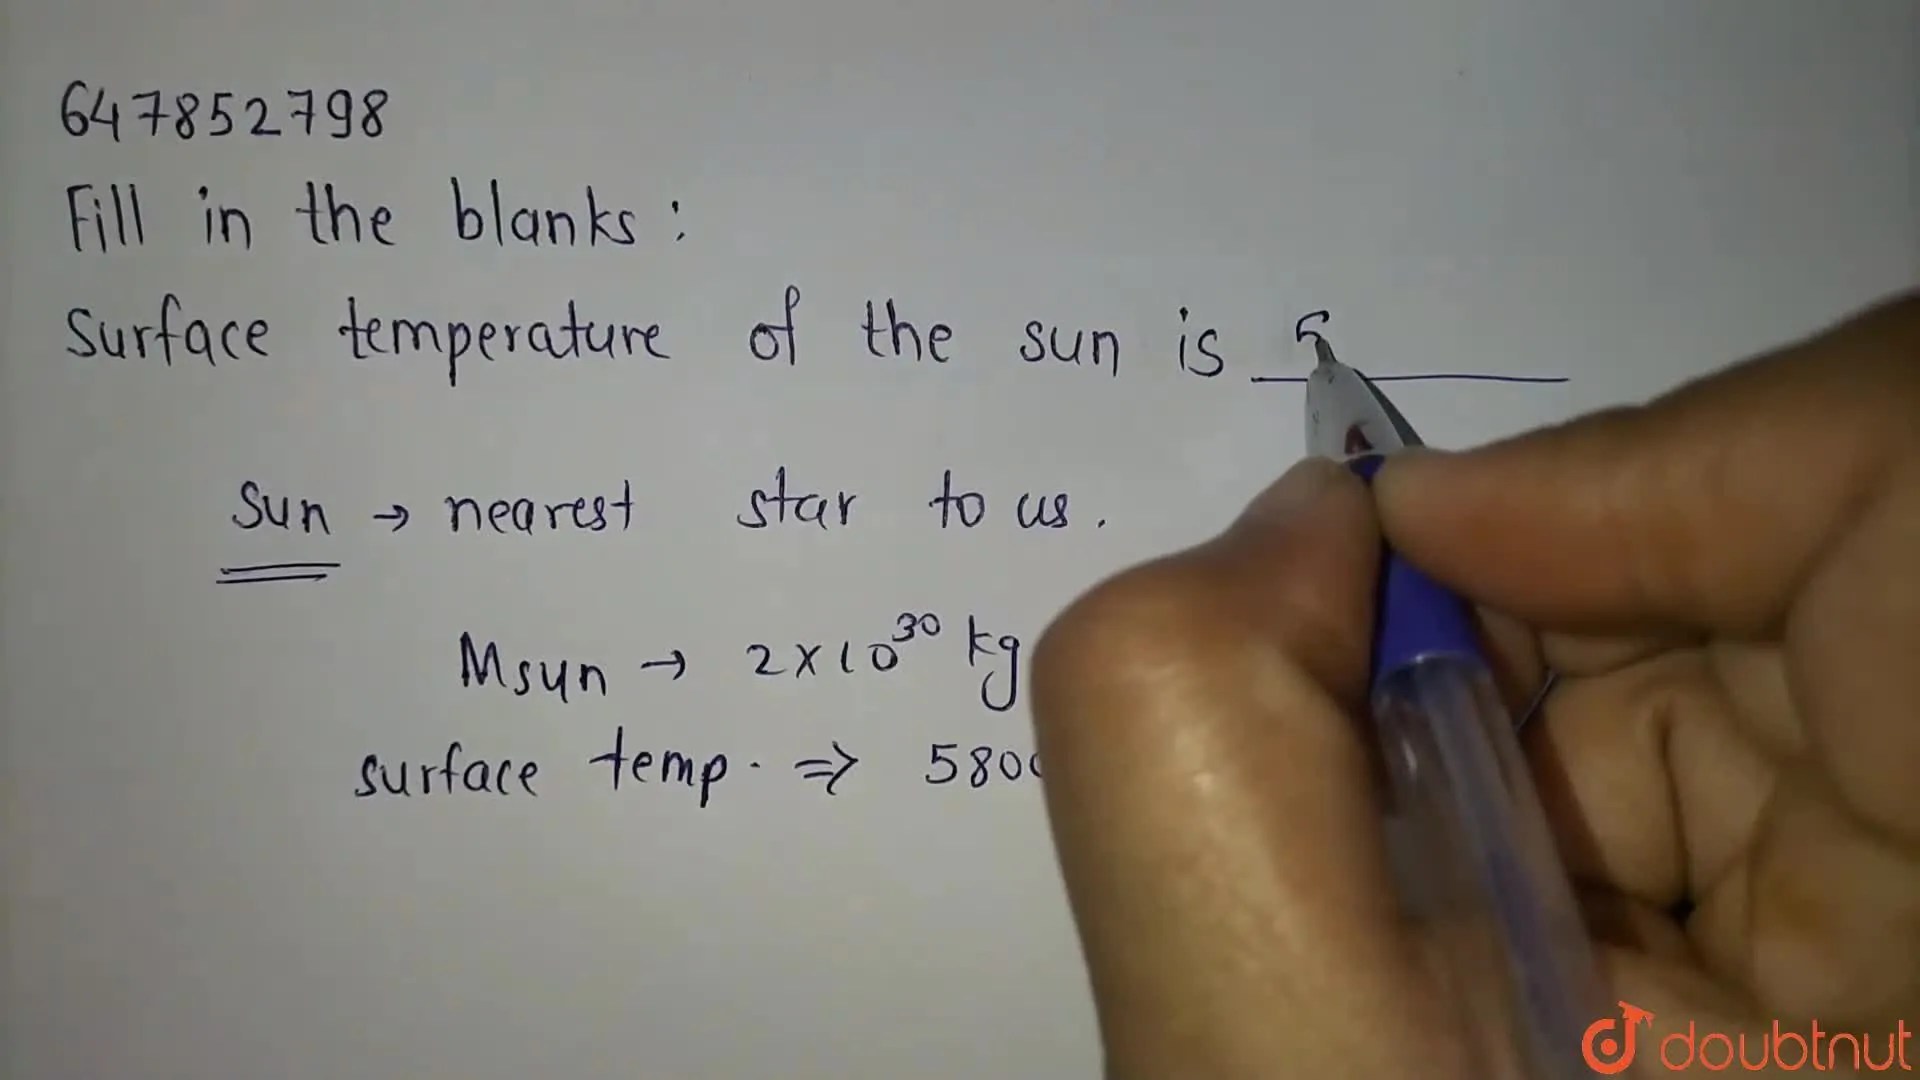 647852798
Fill in the blanks :
Surface temperature of the sun is 5
Sun → nearest star to us .
Msun → 2 × 10³⁰ kg
surface temp. ⇒ 580
doubtnut